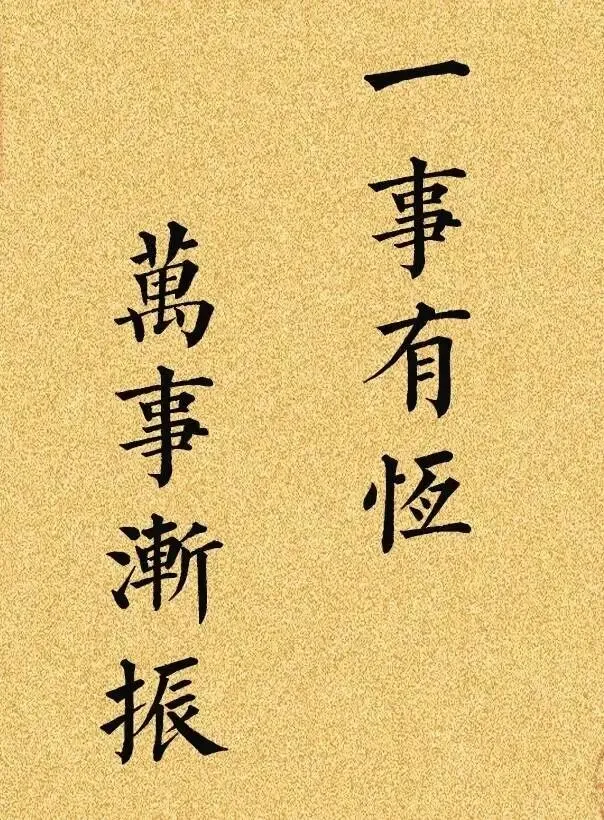 一事有恆
萬事漸振